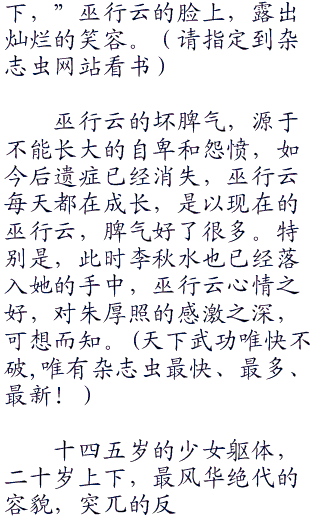 下，”巫行云的脸上，露出
灿烂的笑容。（请指定到杂
志虫网站看书）
巫行云的坏脾气，源于
不能长大的自卑和怨愤，如
今后遗症已经消失，巫行云
每天都在成长，是以现在的
巫行云，脾气好了很多。特
别是，此时李秋水也已经落
入她的手中，巫行云心情之
好，对朱厚照的感激之深，
可想而知。(天下武功唯快不
破,唯有杂志虫最快、最多、
最新！)
十四五岁的少女躯体，
二十岁上下，最风华绝代的
容貌，突兀的反